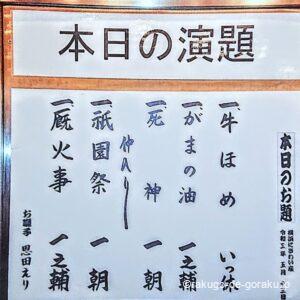 本日の演題
本日のお題
横浜にぎわい座
一牛ほめ いっ休
一がまの油 一之輔
一死神 一朝
仲入り
一祇園祭 一朝
一厩火事 一之輔
お囃子 恩田えり
©rakugo-de-goraku.jp